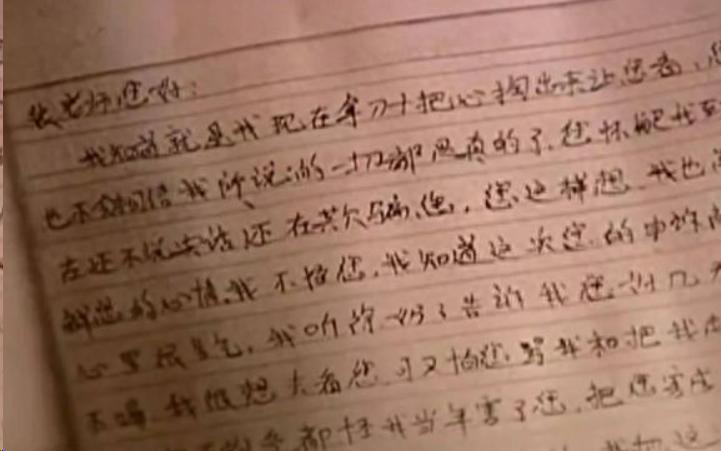 张老师您好：
我知道就是我现在拿刀把心掏出来让您看，您
也不会相信我所说的一切都是真的了，您怀疑我到现
在还不说实话还在欺骗您，您这样想，我也
解您的心情，我不怪您，我知道这次您的申诉
心里很生气，我听 告诉我您 几天
不 我很想去看您，可又怕您骂我和把我
都怪我当年害了您，把您害成